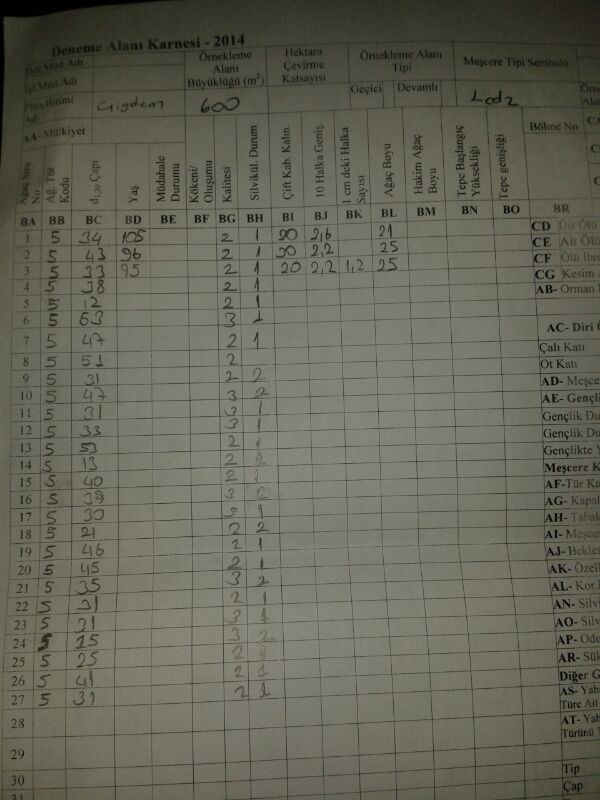 Deneme Alanı Karnesi - 2014
Böl.Müd.Adı
İşl.Müd.Adı
Plan.Birimi Adı
Çigdem
AA- Mülkiyet
Örnekleme Alanı Büyüklüğü (m²)
600
Hektara Çevirme Katsayısı
Örnekleme Alanı Tipi
Geçici Devamlı
Meşcere Tipi Sembolü
Bölme No
Ağaç Sıra No
Ağ. Tür Kodu
d1,30 Çapı
Yaş
Müdahale Durumu
Kökeni/ Oluşumu
Kalitesi
Silvikül. Durum
Çift Kab. Kalın.
10 Halka Geniş.
1 cm deki Halka Sayısı
Ağaç Boyu
Hakim Ağaç Boyu
Tepe Başlangıç Yüksekliği
Tepe genişliği
BA BB BC BD BE BF BG BH BI BJ BK BL BM BN BO BR
1 5 34 105 2 1 2,6 21
2 5 43 96 2 1 2,2 25
3 5 33 95 2 1 20 2,2 1,2 25
4 5 38 2 1
5 5 12 2 1
6 5 3 1
7 5 47 2 1
8 5 51 2
9 5 31 2 2
10 5 47 3 2
11 5 31 3 1
12 5 33 3 1
13 5 53 2 1
14 5 13 2 2
15 5 40 2 1
16 5 39 3 2
17 5 30 3 1
18 5 21 2 2
19 5 46 2 1
20 5 45 2 1
21 5 35 3 2
22 5 31 2 1
23 5 3 1
24 5 3 2
25 5 25 2
26 5 41 2 1
27 5 31 2 1
28
29
30
31
CD Üst Ölü
CE Alt Ölü
CF Ölü
CG Kesim
AB- Orman
AC- Diri
Çalı Katı
Ot Katı
AD- Meşce
AE- Gençli
Gençlik Du
Gençlik Du
Gençlikte Y
Meşcere K
AF-Tür Ka
AG- Kapal
AH- Tabak
AI- Meşce
AJ- Bekle
AK- Özeli
AL- Kor.
AN- Silvi
AO- Silv
AP- Odu
AR- Sük
Diğer G
AS- Yaba
Türe Ait
AT- Yab
Türünü
Tip
Çap